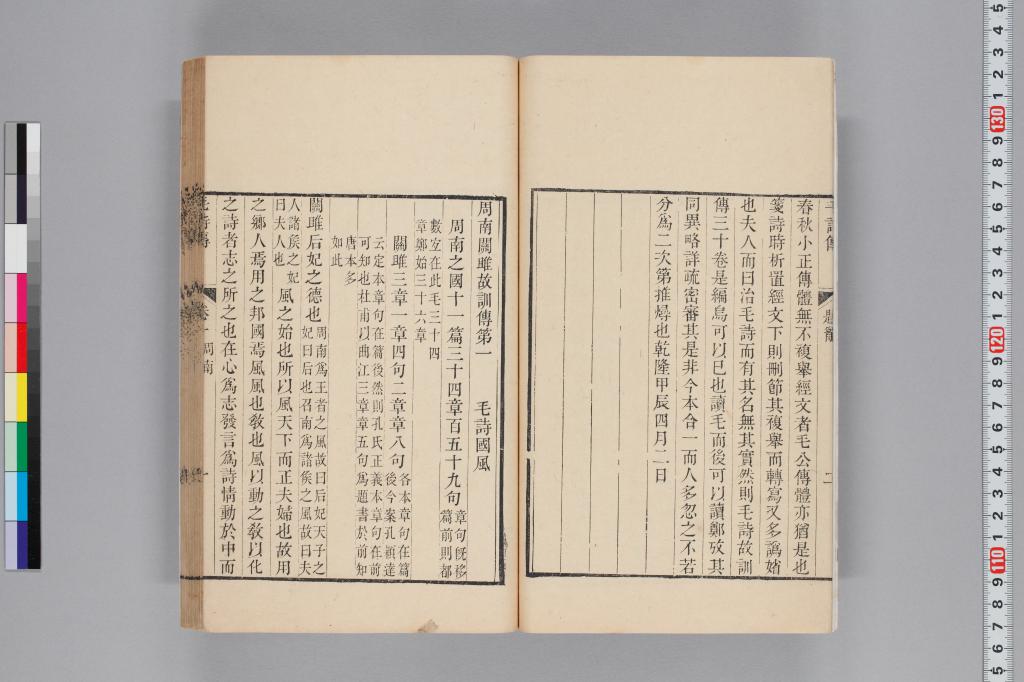 春秋小正傳體無不複舉經文者毛公傳體亦猶是也
箋詩時析置經文下則刪節其複舉而轉寫又多譌媘
也夫人而曰治毛詩而有其名無其實然則毛詩故訓
傳三十卷是編烏可以已也讀毛而後可以讀鄭攷其
同異略詳疏密審其是非今本合一而人多忽之不若
分爲二次第推燖也乾隆甲辰四月二日
周南關雎故訓傳第一 毛詩國風
周南之國十一篇三十四章百五十九句章句旣移
篇前則都
數宐在此毛三十四
章鄭始三十六章
關雎三章一章四句二章章八句各本章句在篇
後今案孔穎達
云定本章句在篇後然則孔氏正義本章句在前
可知也杜甫以曲江三章章五句爲題書於前知
唐本多
如此
關雎后妃之德也周南爲王者之風故曰后妃天子之
妃曰后也召南爲諸矦之風故曰夫
人諸矦之妃
曰夫人也
風之始也所以風天下而正夫婦也故用
之鄉人焉用之邦國焉風風也敎也風以動之敎以化
之詩者志之所之也在心爲志發言爲詩情動於中而
周南
一